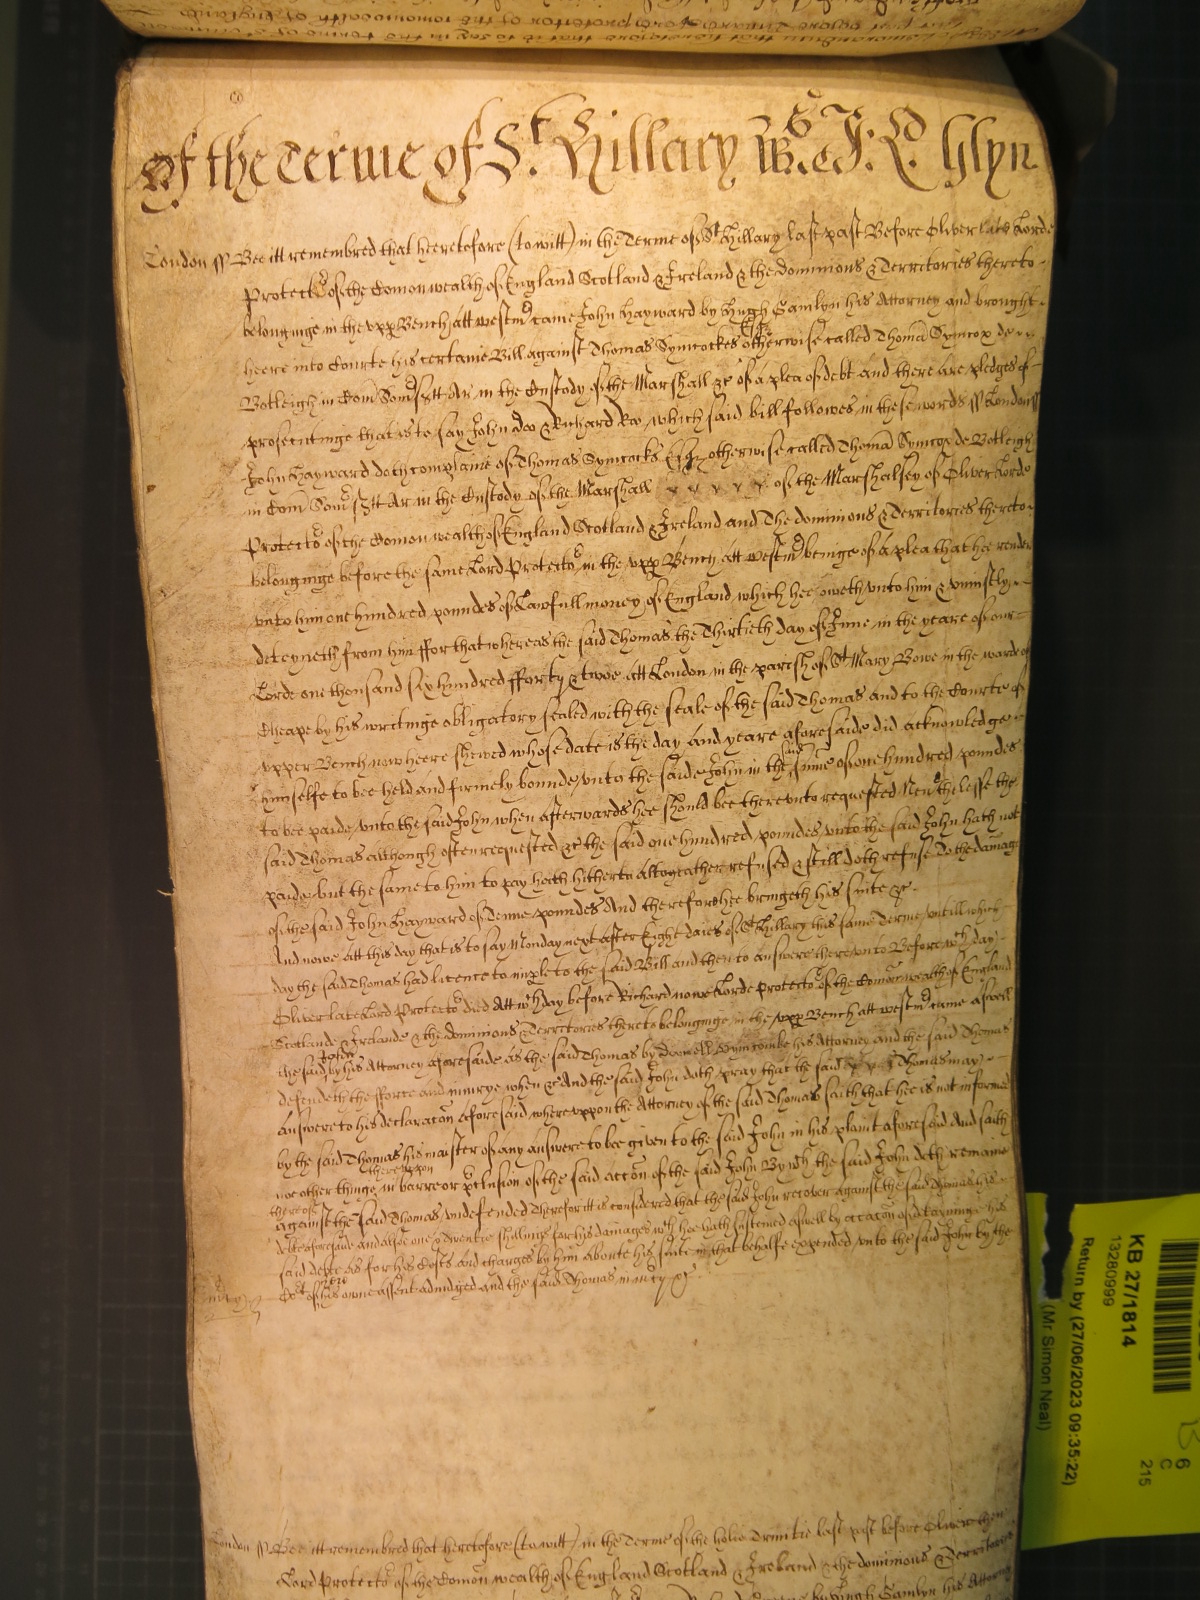 Of the Terme of St. Hillary Wr. e J. L. Glyn
London ss Bee itt remembred that heeretofore (to witt) in the Terme of St Hillary last past Before Oliver late Lorde
Protector of the Comonwealth of England Scotland & Ireland & the dominions & Territories thereto
belonginge in the upp Bench att westmr came John Hayward by Hugh Gamlyn his Attorney and brought
heere into Courte his certaine Bill against Thomas Symcockes Esqr otherwise called Thoma Symcox de
Botleigh in Com Somsett Ar in the Custody of the Marshall &c of a plea of debt and there are pledges of
prosecutinge that is to say John doo & Richard Roo which said bill followes in these words ss London ss
John Hayward doth complaine of Thomas Symcocks Esqr otherwise called Thoma Symcox de Botleigh
in Com Somsett Ar in the Custody of the Marshall of the Marshalsey of Oliver Lorde
Protector of the Comonwealth of England Scotland & Ireland and The dominions & Territories thereto
belonginge before the same Lord Protector in the upp Bench att westmr beinge of a plea that hee render
unto him one hundred poundes of Lawfull money of England which hee oweth unto him & uniustly
deteyneth from him ffor that whereas the said Thomas the Thirtieth day of June in the yeare of our
Lorde one thousand six hundred fforty & twoe att London in the parish of St Mary Bowe in the warde of
Cheape by his writinge obligatory sealed with the seale of the said Thomas and to the Courte of
upper Bench now heere shewed whose date is the day and yeare aforesaide did acknowledge
himselfe to bee held and firmely bounde unto the saide John in the said summe of one hundred poundes
to bee paide unto the said John when afterwards hee should bee thereunto requested Neverthelesse the
said Thomas although often requested &c the said one hundred poundes unto the said John hath not
paide but the same to him to pay hath hitherto altogeather refused & still doth refuse To the damage
of the said John Hayward of Tenne poundes And therefore hee bringeth his suite &c.
And nowe att this day that is to say Monday next after Eight daies of St Hillary this same Terme untill which
day the said Thomas had licence to imple to the said Bill and then to answere thereunto Before wch day
Oliver late Lord Protector died Att wch day before Richard nowe Lorde protector of the Comonwealth of England
Scotlande & Irelande & the dominions & Territories thereto belonginge in the upp Bench att westmr came aswell
the said John by his Attorney aforesaide as the said Thomas by his Attorney and the said Thomas
defendeth the fforce and iniurye when &c And the said John doth pray that the said Thomas may
Answere to his declaracon aforesaid whereuppon the Attorney of the said Thomas saith that hee is not informed
by the said Thomas his maister of any answere to bee given to the said John in his plaint aforesaid And saith
noe other thinge in barre or p'clusion of the said accon of the said John By wch the said John doth remaine
thereuppon
thereof
against the said Thomas undefended Therefore itt is considered that the said John recover against the said Thomas his
debt aforesaid and alsoe one & twentie shillings for his damages wch hee hath susteined aswell by occacon of deteyninge his
said debte as for his Costs and charges by him aboute his suite in that behalfe expended unto the said John by the
Cort heere of his owne assent adiudged and the said Thomas in mcy &c.
London ss Bee itt remembred that heretofore (to witt) in the Terme of the holie Trinitie last past before Oliver then
Lord Protector of the Comonwealth of England Scotland & Ireland & the dominions & Territories
by Hugh Gamlyn his Attorney
KB 27/1814
13280999
Return by (27/06/2023 09:35:22)
(Mr Simon Neal)
6
C
215